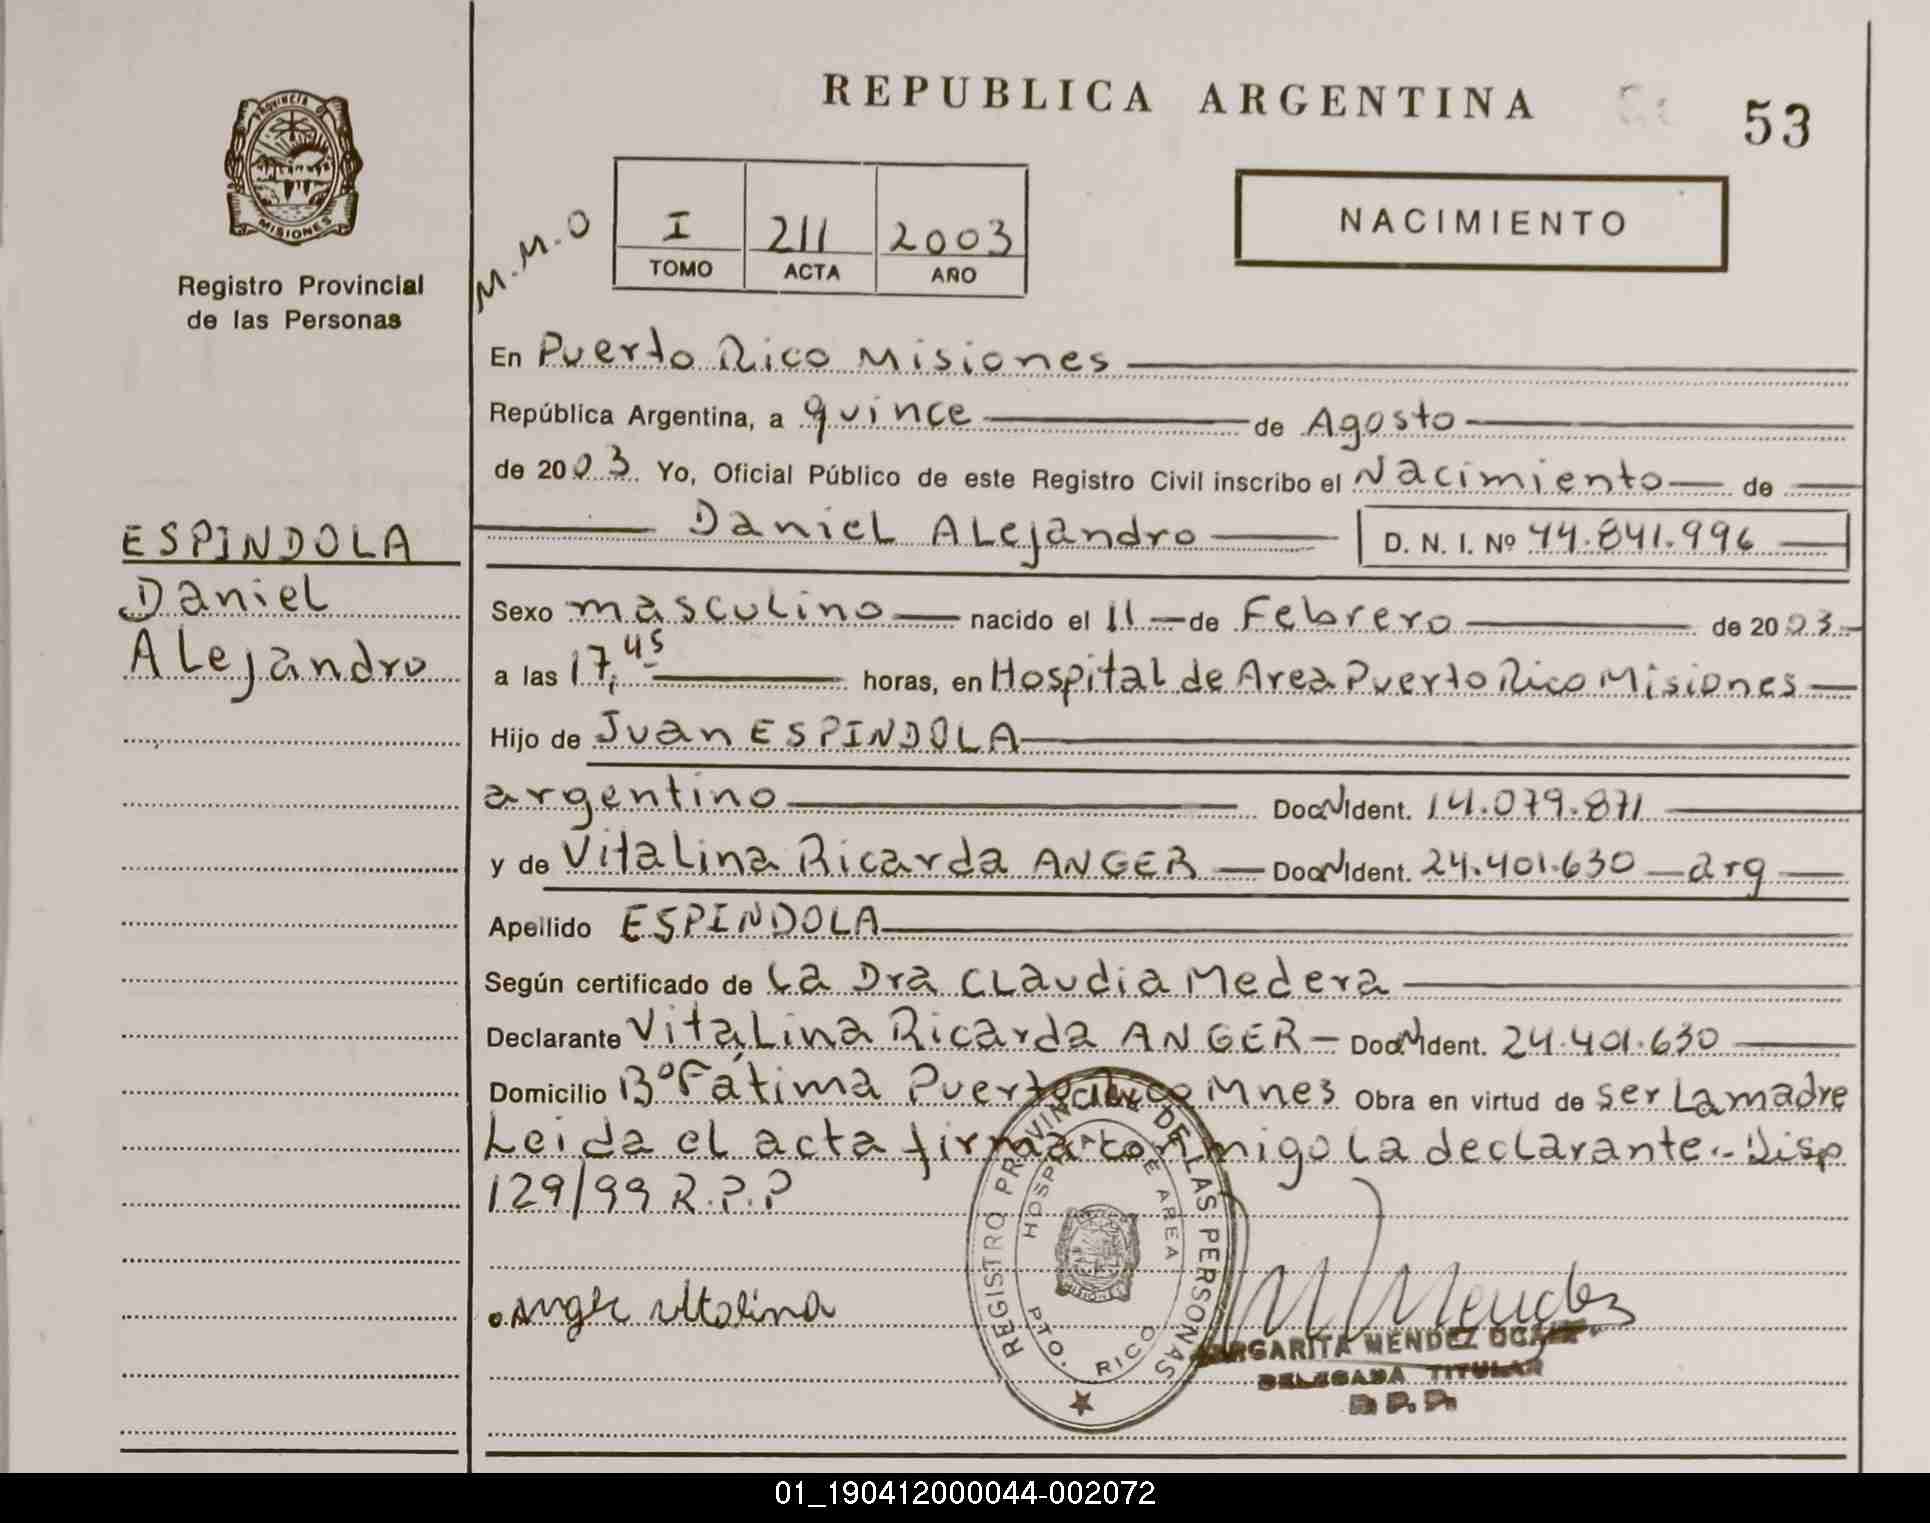 REPUBLICA ARGENTINA
53
PROVINCIA DE
MISIONES
Registro Provincial
de las Personas
M.M.O
I 211 2003
TOMO ACTA AÑO
NACIMIENTO
En Puerto Rico Misiones
República Argentina, a quince de Agosto
de 2003 Yo, Oficial Público de este Registro Civil inscribo el Nacimiento de
Daniel Alejandro D. N. I. Nº 44.841.996
ESPINDOLA
Daniel
Alejandro
Sexo masculino nacido el 11 de Febrero de 2003
a las 17,45 horas, en Hospital de Area Puerto Rico Misiones
Hijo de Juan ESPINDOLA
argentino Doc N Ident. 14.079.871
y de Vitalina Ricarda ANGER Doc N Ident. 24.401.630 arg
Apellido ESPINDOLA
Según certificado de La Dra Claudia Medera
Declarante Vitalina Ricarda ANGER Doc N Ident. 24.401.630
Domicilio Bº Fátima Puerto Rico Mnes Obra en virtud de ser La madre
Leida el acta firma conmigo la declarante.- Disp
129/99 R.P.P
REGISTRO PROVINCIAL DE LAS PERSONAS
HOSPITAL DE AREA
PTO. RICO
MISIONES
Anger Vitalina
M Mendez
MARGARITA MENDEZ
DELEGADA TITULAR
R. P. P.
01_190412000044-002072